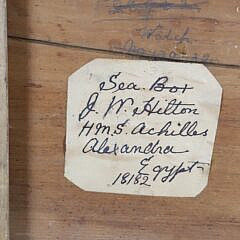 Sea Box
J. W. Hilton
H.M.S. Achilles
Alexandra
Egypt
18182